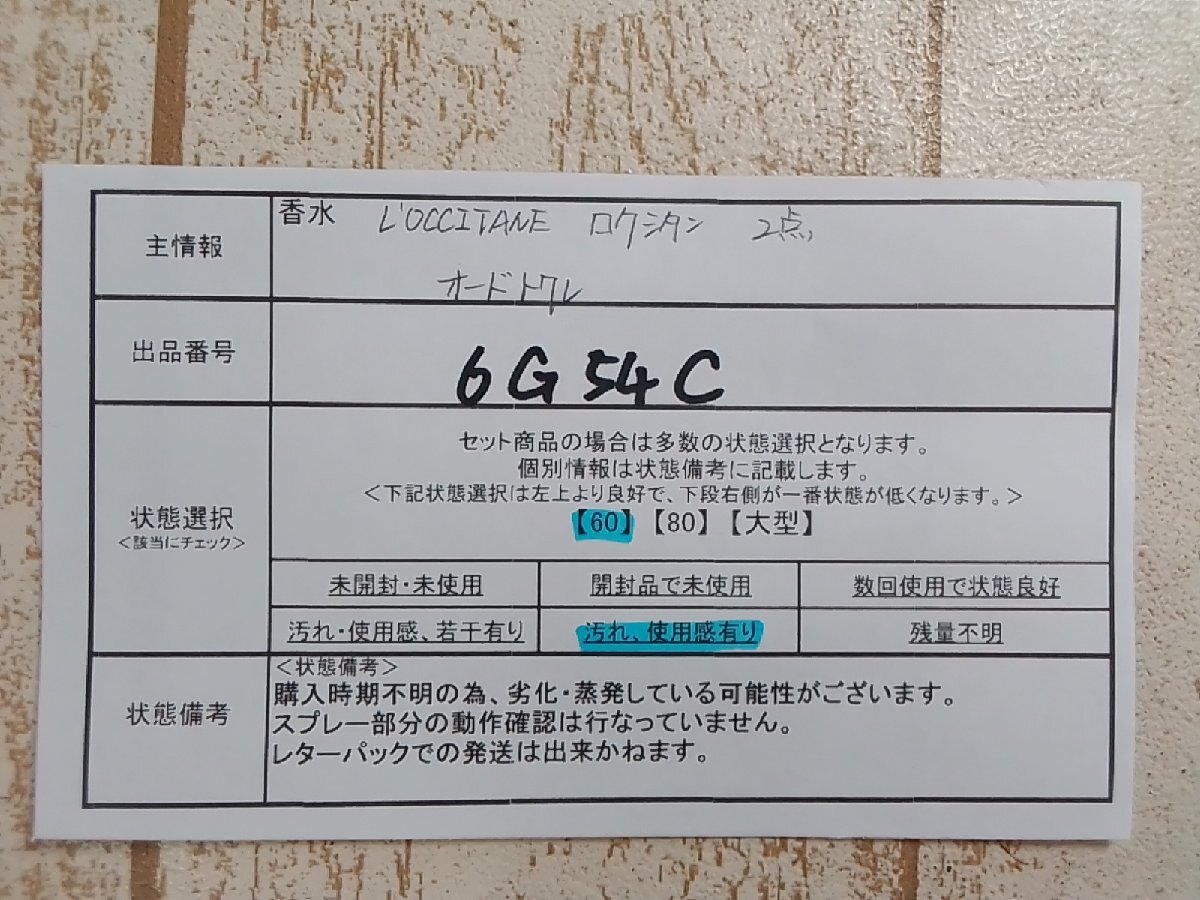 主情報
香水 L'OCCITANE ロクシタン 2点
オードトワレ
出品番号
6G54C
状態選択
＜該当にチェック＞
セット商品の場合は多数の状態選択となります。
個別情報は状態備考に記載します。
＜下記状態選択は左上より良好で、下段右側が一番状態が低くなります。＞
【60】【80】【大型】
未開封・未使用 開封品で未使用 数回使用で状態良好
汚れ・使用感、若干有り 汚れ、使用感有り 残量不明
状態備考
＜状態備考＞
購入時期不明の為、劣化・蒸発している可能性がございます。
スプレー部分の動作確認は行なっていません。
レターパックでの発送は出来かねます。